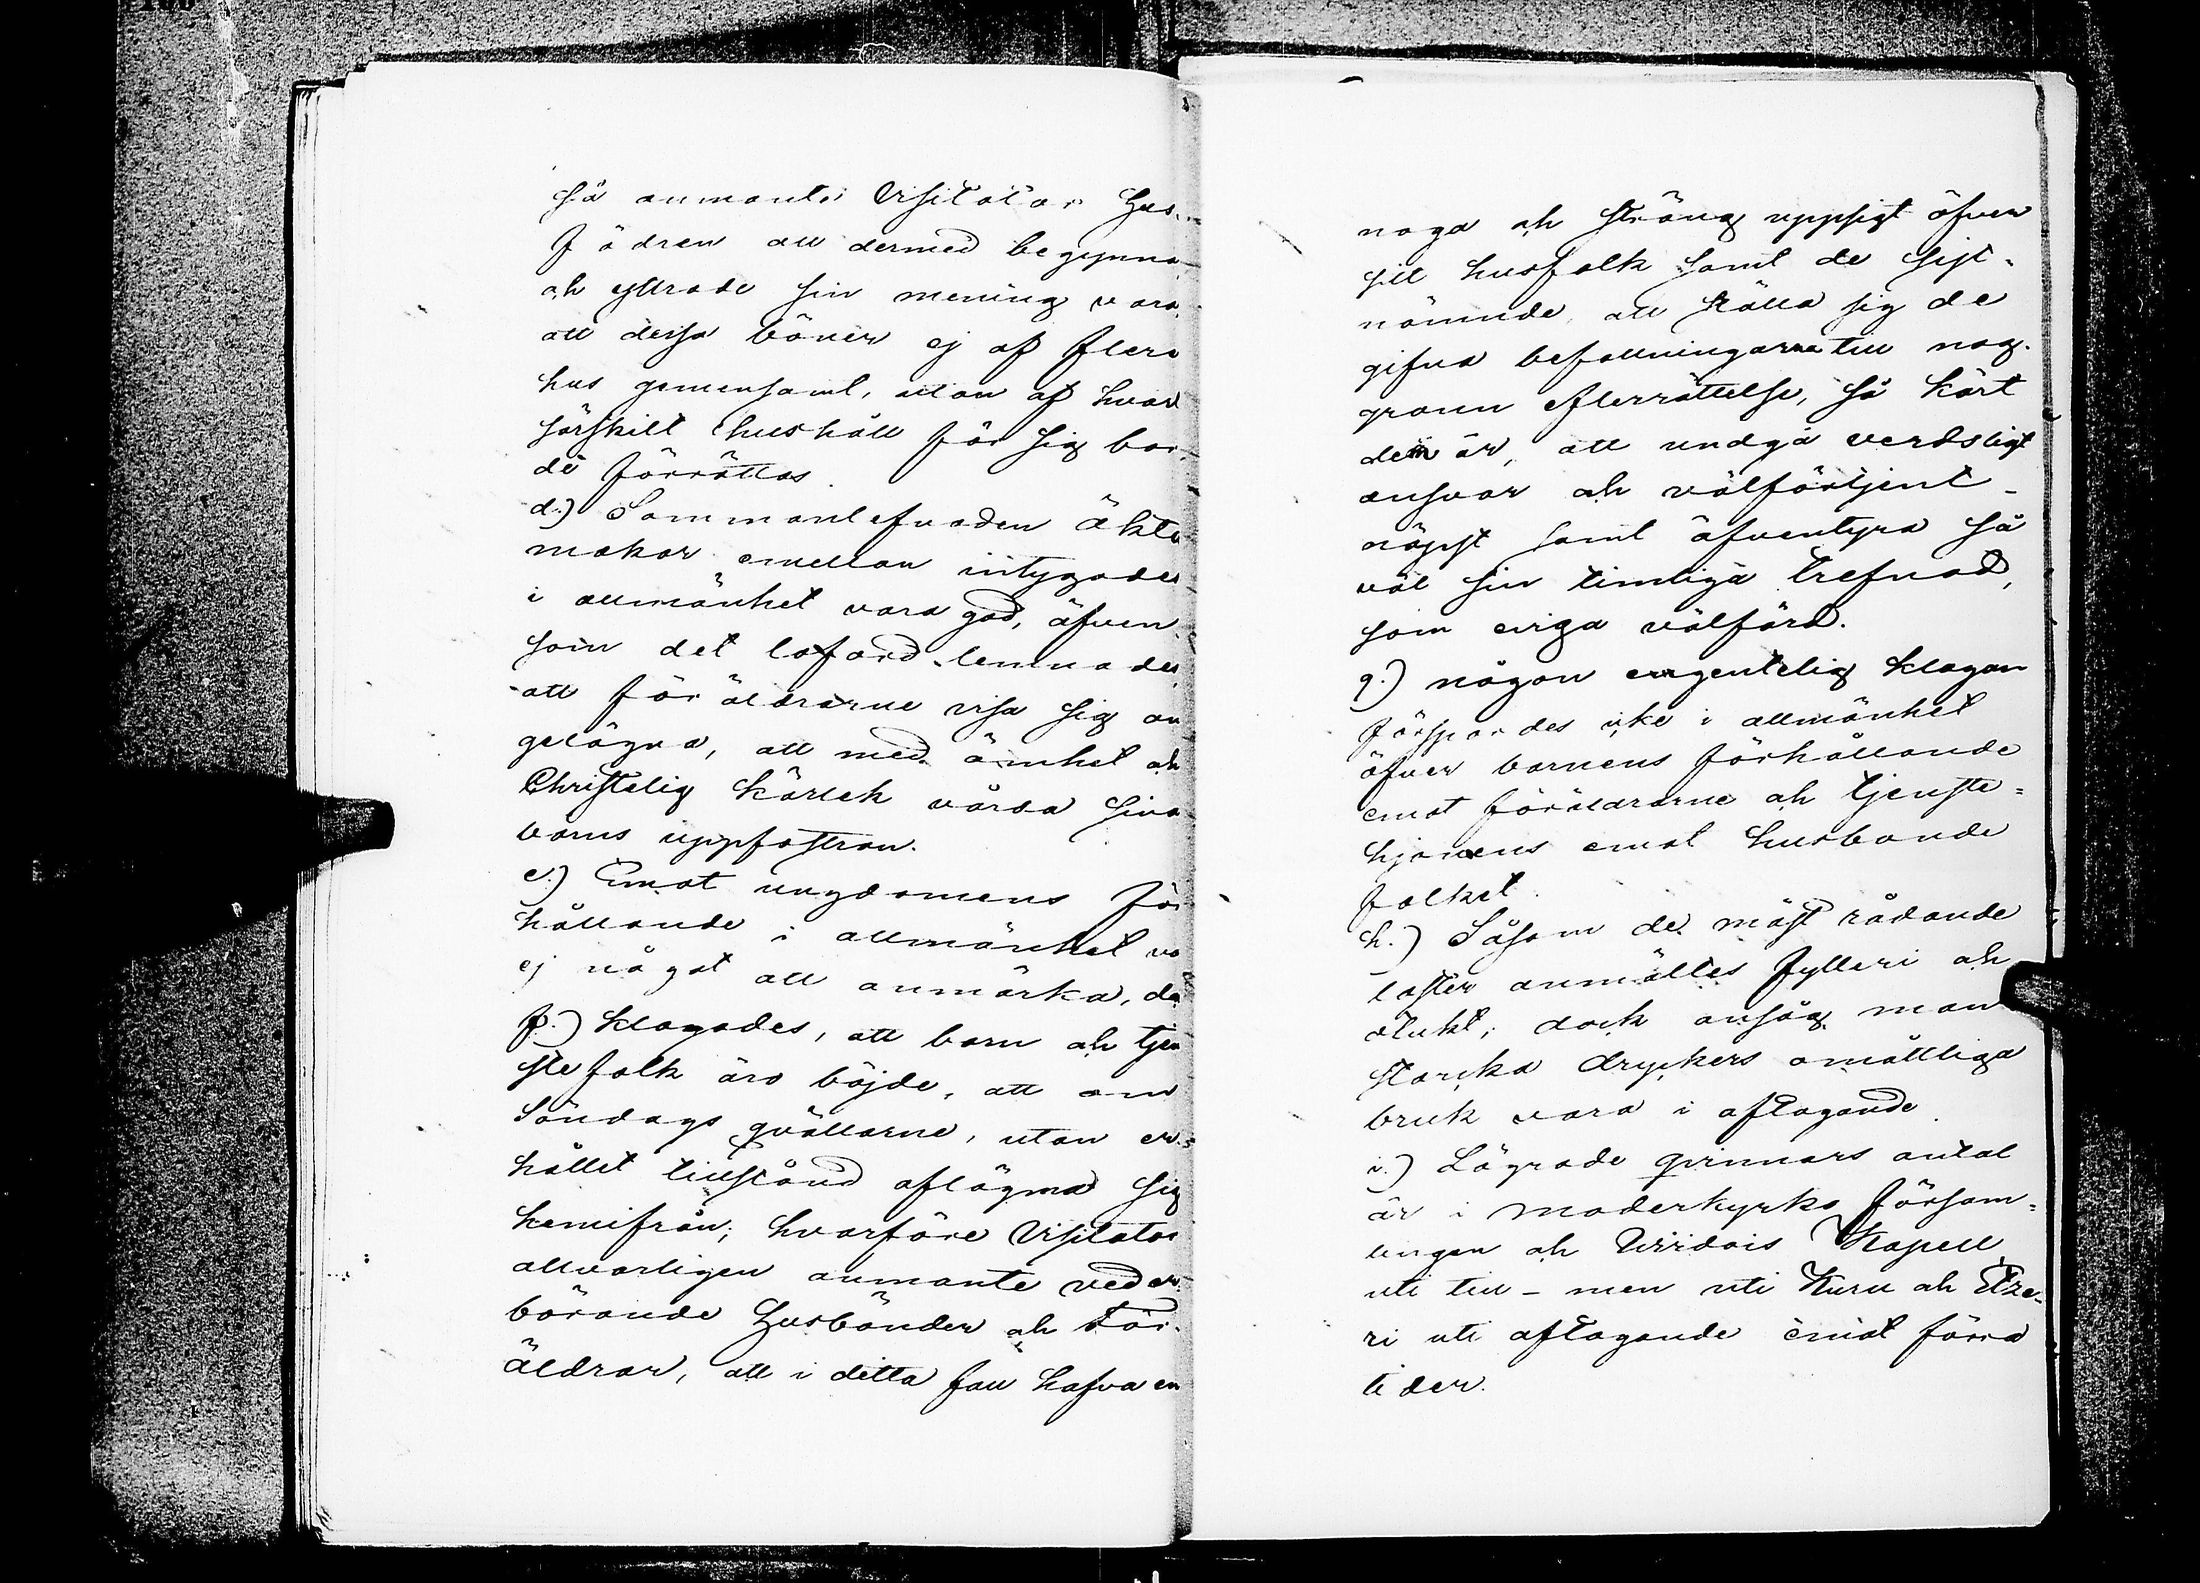 så anmante Visitator Hus-
fädren att dermed begynna
och yttrade sin mening vara,
att dessa böner ej af flera
hus gemensamt, utan af hvar
särskilt hushåll för sig bor-
de förrättas.
d.) Sammanlefnaden äkta
makar emellan intygades
i allmänhet vara god, äfven
som det loford lemnades
att föräldrarne visa sig an
gelägna, att med ömhet och
Christelig kärlek vårda sina
barns uppfostran.
e.) Emot ungdomens för
hållande i allmänhet va
ej något att anmärka, då
f.) klagades, att barn och tjen
stefolk äro böjde, att om
Söndags qvällarne, utan er-
hållet tillstånd aflägsna sig
hemifrån; hvarföre Visitator
allvarligen anmante veder-
börande Husbönder och För-
äldrar, att i detta fall hafva en
noga och sträng uppsigt öfver
sitt husfolk samt de sist-
nämnde, att ställa sig de
gifna befallningarna till nog-
grann efterrättelse, så kärt
dem är, att undgå verdsligt
ansvar och välförtjent
näpst samt äfventyra så
väl sin timliga trefnad,
som eviga välfärd.
g.) någon egentelig klagan
förspordes icke i allmänhet
öfver barnens förhållande
emot föräldrarne och tjenste-
hjonens emot husbonde
folket.
h.) Såsom de mäst rådande
laster anmältes fylleri och
otukt; dock ansåg man
starcka dryckers omåttliga
bruk vara i aftagande.
i.) Lägrade qvinnors antal
är i moderkyrko försam-
lingen och Wirdois Kapell
uti till- men uti Kuru och Etze-
ri uti aftagande emot förra
tider.